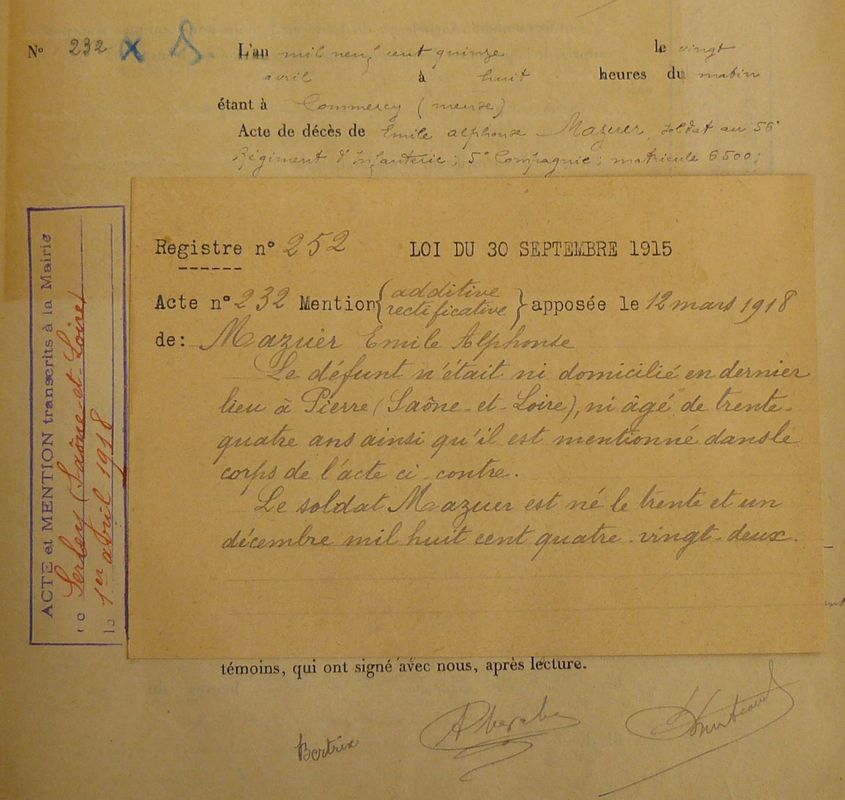 N° 232 L'an mil neuf cent quinze le vingt
avril à huit heures du matin
étant à Commercy (meuse)
Acte de décès de Emile alphonse Mazuer, soldat au 56e
Régiment d'Infanterie; 5e Compagnie; matricule 6500;
Registre n° 252 LOI DU 30 SEPTEMBRE 1915
Acte n° 232 Mention { additive rectificative } apposée le 12 mars 1918
de: Mazuer Emile Alphonse
Le défunt n'était ni domicilié en dernier
lieu à Pierre (Saône-et-Loire), ni âgé de trente-
quatre ans ainsi qu'il est mentionné dans le
corps de l'acte ci-contre.
Le soldat Mazuer est né le trente et un
décembre mil huit cent quatre-vingt-deux.
ACTE et MENTION transcrits à la Mairie
Serley (Saône-et-Loire)
le 1er avril 1918
témoins, qui ont signé avec nous, après lecture.
Bertrix